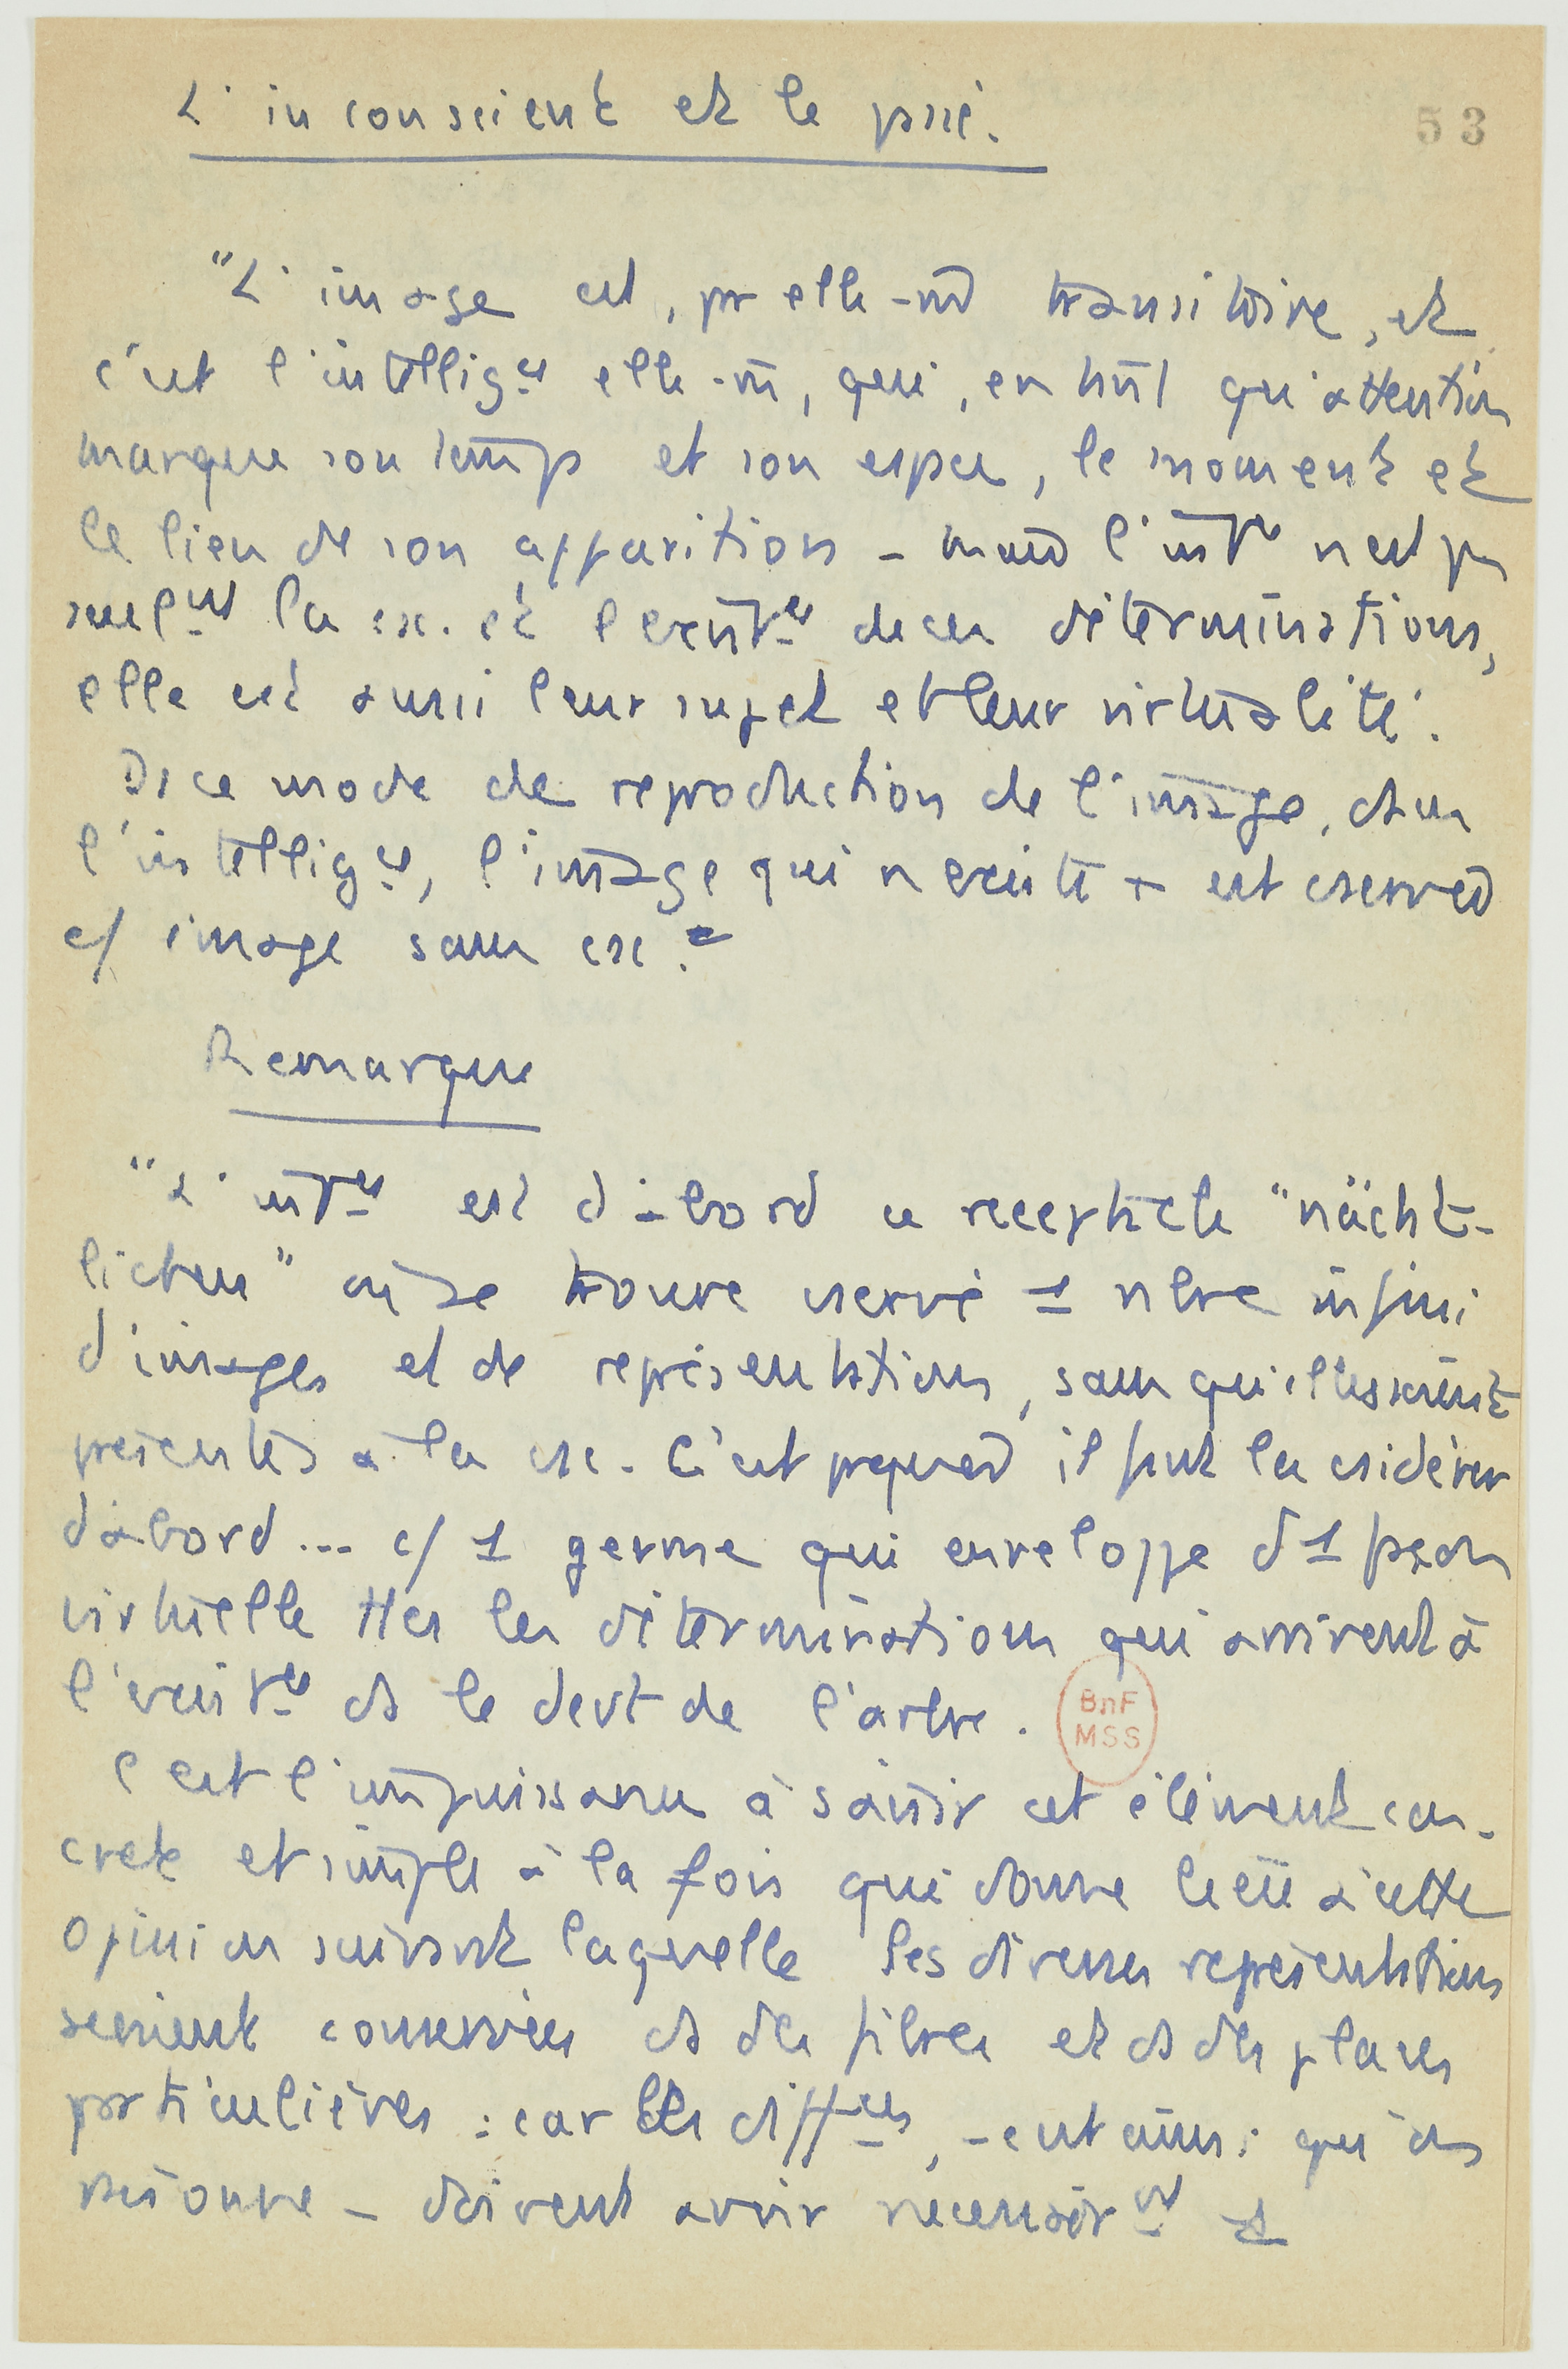 L'inconscient et le passé.
53
"L'image est, pr elle-m̄ transitoire, et
c'est l'intellig<sup>ce</sup> elle-m̄, qui, en tant qu'attention
marque son temps et son espace, le moment et
le lieu de son apparition - mais l'int<sup>ce</sup> n'est pas
seul<sup>mt</sup> la csc. et l'exist<sup>ce</sup> de ces déterminations,
elle est aussi leur sujet et leur virtualité.
Ds ce mode de reproduction de l'image, dans
l'intellig<sup>ce</sup>, l'image qui n'existe + est cservée
c/ image sans csc."
Remarque
"L'int<sup>ce</sup> est d'abord ce receptacle "nächt-
lichen" où se trouve cservé 1 nbre infini
d'images et de représentations, sans qu'elles soient
présentes à la csc. C'est prquoi il faut la csidérer
d'abord... c/ 1 germe qui enveloppe d'1 façon
virtuelle ttes les déterminations qui arrivent à
l'exist<sup>ce</sup> ds le devt de l'arbre.
BnF
MSS
C'est l'impuissance à saisir cet élément con-
cret et simple à la fois qui donne lieu à cette
opinion suivant laquelle les diverses représentations
seraient conservées ds des fibres et ds des places
particulières : car les diff<sup>ces</sup>, - c'est ainsi qu'on
raisonne - doivent avoir nécessair<sup>mt</sup> 1